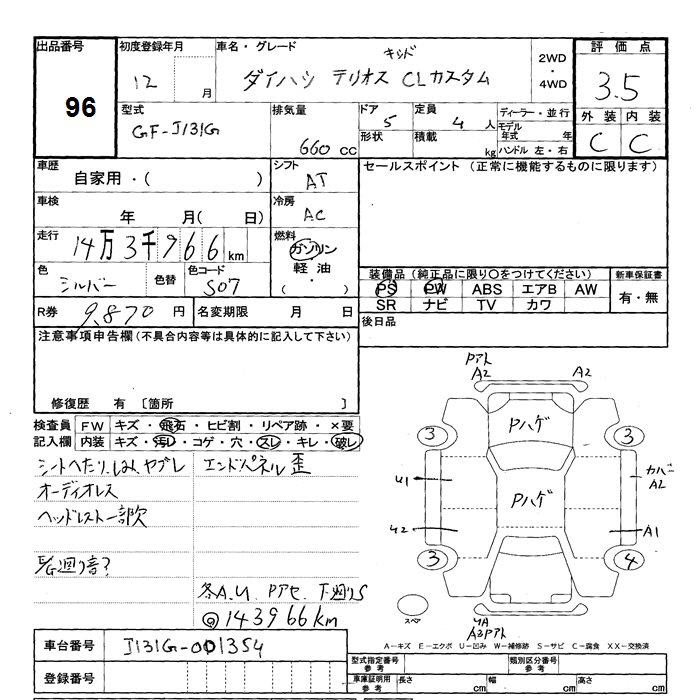 出品番号
96
初度登録年月
12 月
車名・グレード
キッド
ダイハツ テリオス CLカスタム
2WD
・
4WD
評価点
3.5
外装 内装
C C
型式
GF-J131G
排気量
660 cc
ドア
5
形状
定員
4 人
積載
kg
ディーラー・並行
モデル年式 年
ハンドル 左・右
車歴
自家用・( )
シフト
AT
セールスポイント (正常に機能するものに限ります)
車検
年 月( 日)
冷房
AC
走行
14万3千966km
燃料
ガソリン
軽油
・( )
色
シルバー
色替
色コード
S07
装備品(純正品に限り○をつけてください)
PS PW ABS エアB AW
SR ナビ TV カワ
新車保証書
有・無
R券 9,870 円
名変期限 月 日
後日品
注意事項申告欄(不具合内容等は具体的に記入して下さい)
修復歴 有 〔箇所 〕
検査員記入欄
FW キズ・飛石・ヒビ割・リペア跡・×要
内装 キズ・汚レ・コゲ・穴・スレ・キレ・破レ
シートヘたり、しみ、ヤブレ
エンドパネル歪
オーディオレス
ヘッドレスト一部欠
E/G廻り音?
各A.U. Pアセ. 下廻りS
@143966km
Pアト
A2
A2
Pハゲ
3
3
U1
カバー
A2
Pハゲ
U2
A1
3
4
スペア
UA
A3Pアト
A-キズ E-エクボ U-凹み W-補修跡 S-サビ C-腐食 XX-交換済
車台番号
J131G-001354
登録番号
型式指定番号
参考
類別区分番号
参考
車庫証明用
参考
長さ cm
幅 cm
高さ cm